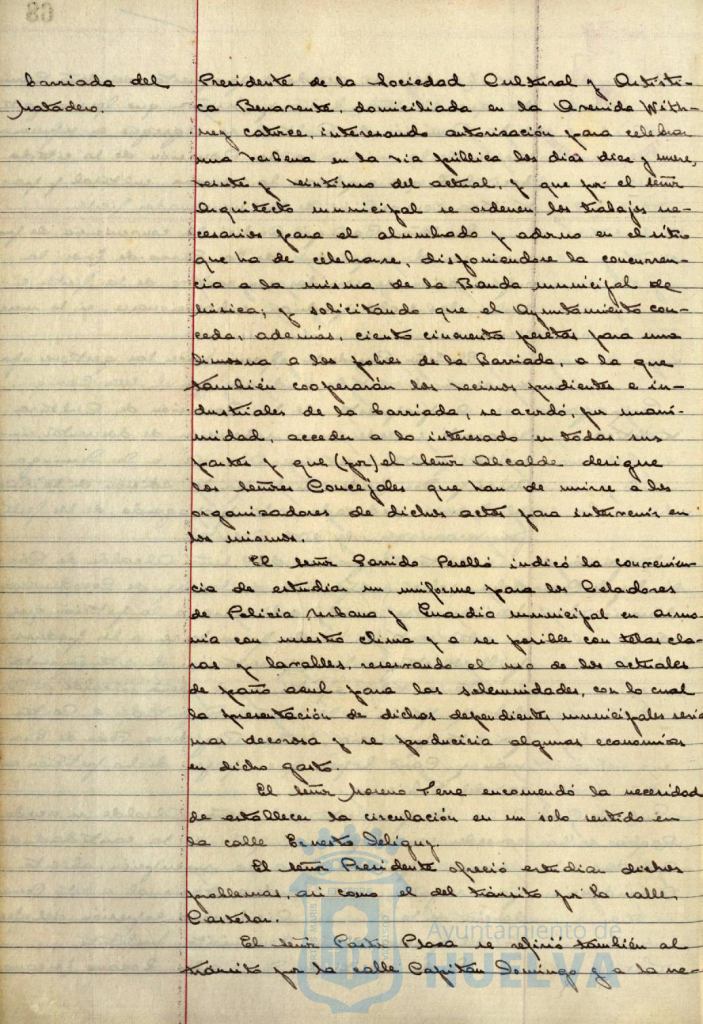 barriada del
Matadero.
Presidente de la Sociedad Cultural y Artísti-
ca Benavente, domiciliada en la Avenida With-
ney catorce, interesando autorización para celebrar
una verbena en la vía pública los días diez y nueve,
veinte y veintiuno del actual, y que por el señor
Arquitecto municipal se ordenen los trabajos ne-
cesarios para el alumbrado y adorno en el sitio
que ha de celebrarse, disponiendose la concurren-
cia a la misma de la Banda municipal de
Música; y solicitando que el Ayuntamiento con-
ceda, además, ciento cincuenta pesetas para una
limosna a los pobres de la Barriada, a la que
también cooperarán los vecinos pudientes e in-
dustriales de la barriada, se acordó, por unani-
midad, acceder a lo interesado en todas sus
partes y que (por) el señor Alcalde designe
los señores Concejales que han de unirse a los
organizadores de dichos actos para intervenir en
los mismos.
El señor Garrido Perelló indicó la convenien-
cia de estudiar un uniforme para los Celadores
de Policía Urbana y Guardia municipal en armo-
nía con nuestro clima y a ser posible con telas cla-
ras y lavables, reservando el uso de los actuales
de paño azul para las solemnidades, con lo cual
la presentación de dichos dependientes municipales sería
mas decorosa y se produciria algunas economías
en dicho gasto.
El señor Moreno encomendó la necesidad
de establecer la circulación en un solo sentido en
la calle Ernesto Deligny.
El señor Presidente ofreció estudiar dichos
problemas, así como el del tránsito por la calle
Castelar.
El señor Pastor Plaza se refirió también al
tránsito por la calle Capitán Domingo y a la ne-
Ayuntamiento de
HUELVA